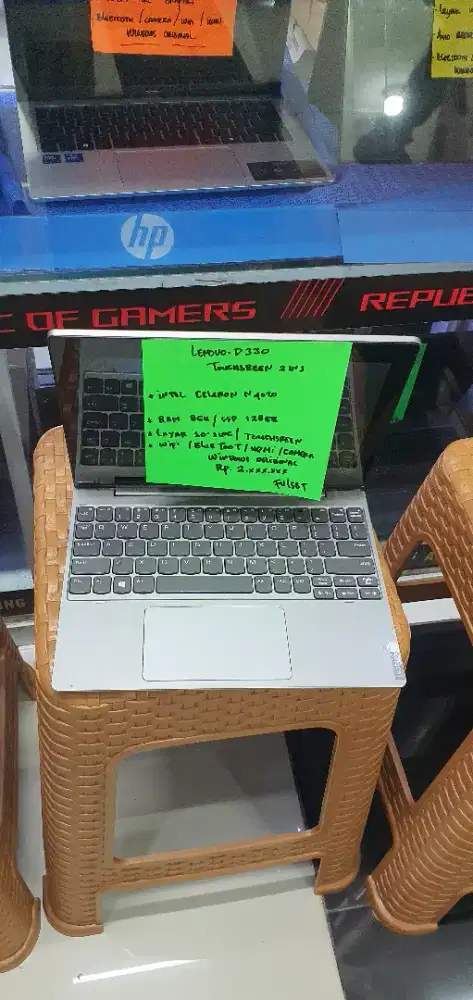 BLUETOOTH / CAMERA / WIFI / HDMI
WINDOWS ORIGINAL
hp
C OF GAMERS
REPUB
LENOVO-D330
TOUCHSCREEN 2 IN 1
* INTEL CELERON N4020
* RAM 8GB / SSD 128GB
* LAYAR 10.1 INC / TOUCHSCREEN
* WIFI / BLUETOOT / HDMI / CAMERA
WINDOWS ORIGINAL
Rp. 2.xxx.xxx
FULLSET